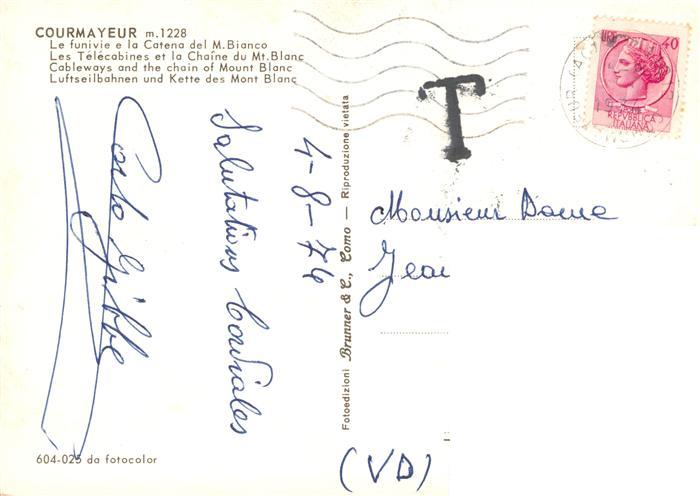 COURMAYEUR m.1228
Le funivie e la Catena del M.Bianco
Les Télécabines et la Chaîne du Mt.Blanc
Cableways and the chain of Mount Blanc
Luftseilbahnen und Kette des Mont Blanc
40
REPVBBLICA
ITALIANA
T
Salutations Cordiales
4-8-76
Carlo
Fotoedizioni Brunner & C., Como — Riproduzione vietata
Monsieur Dame
Jean
(VD)
604-025 da fotocolor